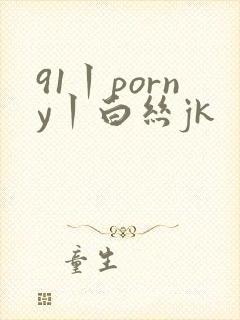 91丨porn
y丨白丝jk
童生